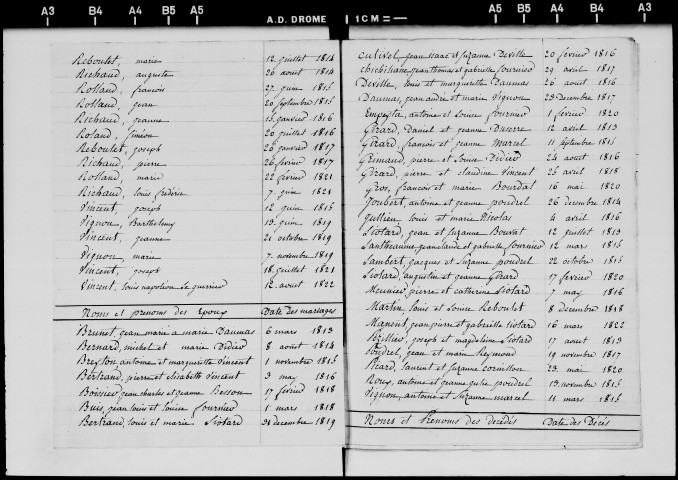 A3 B4 A4 B5 A5 A.D. DROME 1CM A5 B5 A4 B4 A3
Reboulet, marie 12 juillet 1814
Richaud, auguste 26 aout 1814
Rolland, francois 27 juin 1815
Rolland, jean 20 septembre 1815
Richaud, jeanne 15 janvier 1816
Roland, Siméon 20 juillet 1816
Reboulet, joseph 26 janvier 1817
Richaud, pierre 26 fevrier 1817
Rolland, marie 22 février 1821
Richaud, louis frédéric 7 juin 1821
Vincent, joseph 12 juin 1815
Vignon, Barthelemy 13 juin 1819
Vincent, jeanne 21 octobre 1819
Vignon, marie 7 novembre 1819
Vincent, joseph 18 juillet 1821
Vincent, louis napoleon le guerrier 12 aout 1822
Noms et prenoms des Epoux Date des mariages
Brunet, jean marie a marie Daumas 6 mars 1813
Bernard, michel et marie Didier 8 aout 1814
Breyton, antoine et marguerite Vincent 1 novembre 1815
Bertrand, pierre et elisabeth Vincent 3 may 1816
Boissier, jean charles et jeanne Besson 17 février 1818
Buis, jean louis et louise fournier 1 mars 1818
Bertrand, louis et marie Siotard decembre 1819
jean Isaac et Suzanne Deville 20 fevrier 1816
jean thomas et gabrielle fournier 29 avril 1817
Deville, louis et marguerite Daumas 26 aout 1816
Daumas, jean andre et marie Vignon 23 decembre 1817
antoine et Louise fournier 1 fevrier 1820
Girard, Daniel et jeanne 12 avril 1813
Girard, francois et jeanne Marcel 11 septembre 1815
Grimaud, pierre et Louise Didier 24 aout 1816
Girard, pierre et claudine Vincent 25 avril 1818
Gros, francois et marie Bourdat 16 mai 1820
Joubert, antoine et jeanne poudrel 26 decembre 1814
Jullien, louis et marie Nicolas 4 avril 1816
Siotard, jean et Suzanne Bouvat 12 juillet 1813
jean claude et gabrielle fournier 12 mars 1815
Lambert, jacques et Suzanne poudrel 22 octobre 1815
Siotard, augustin et jeanne Girard 17 février 1820
Meunier, pierre et catherine Siotard 7 may 1816
Martin, louis et Louise Reboulet 8 decembre 1818
Manent, jean pierre et gabrielle Siotard 16 mars 1822
joseph et magdeleine Siotard 17 aout 1813
Poudrel, jean et marie Reymond 19 novembre 1817
Picard, laurent et Suzanne cornillon 23 mai 1820
Roux, antoine et jeanne julie poudrel 13 novembre 1815
Vignon, antoine et Suzanne marcel 11 mars 1815
Noms et Prenoms des decedés Date des Décès